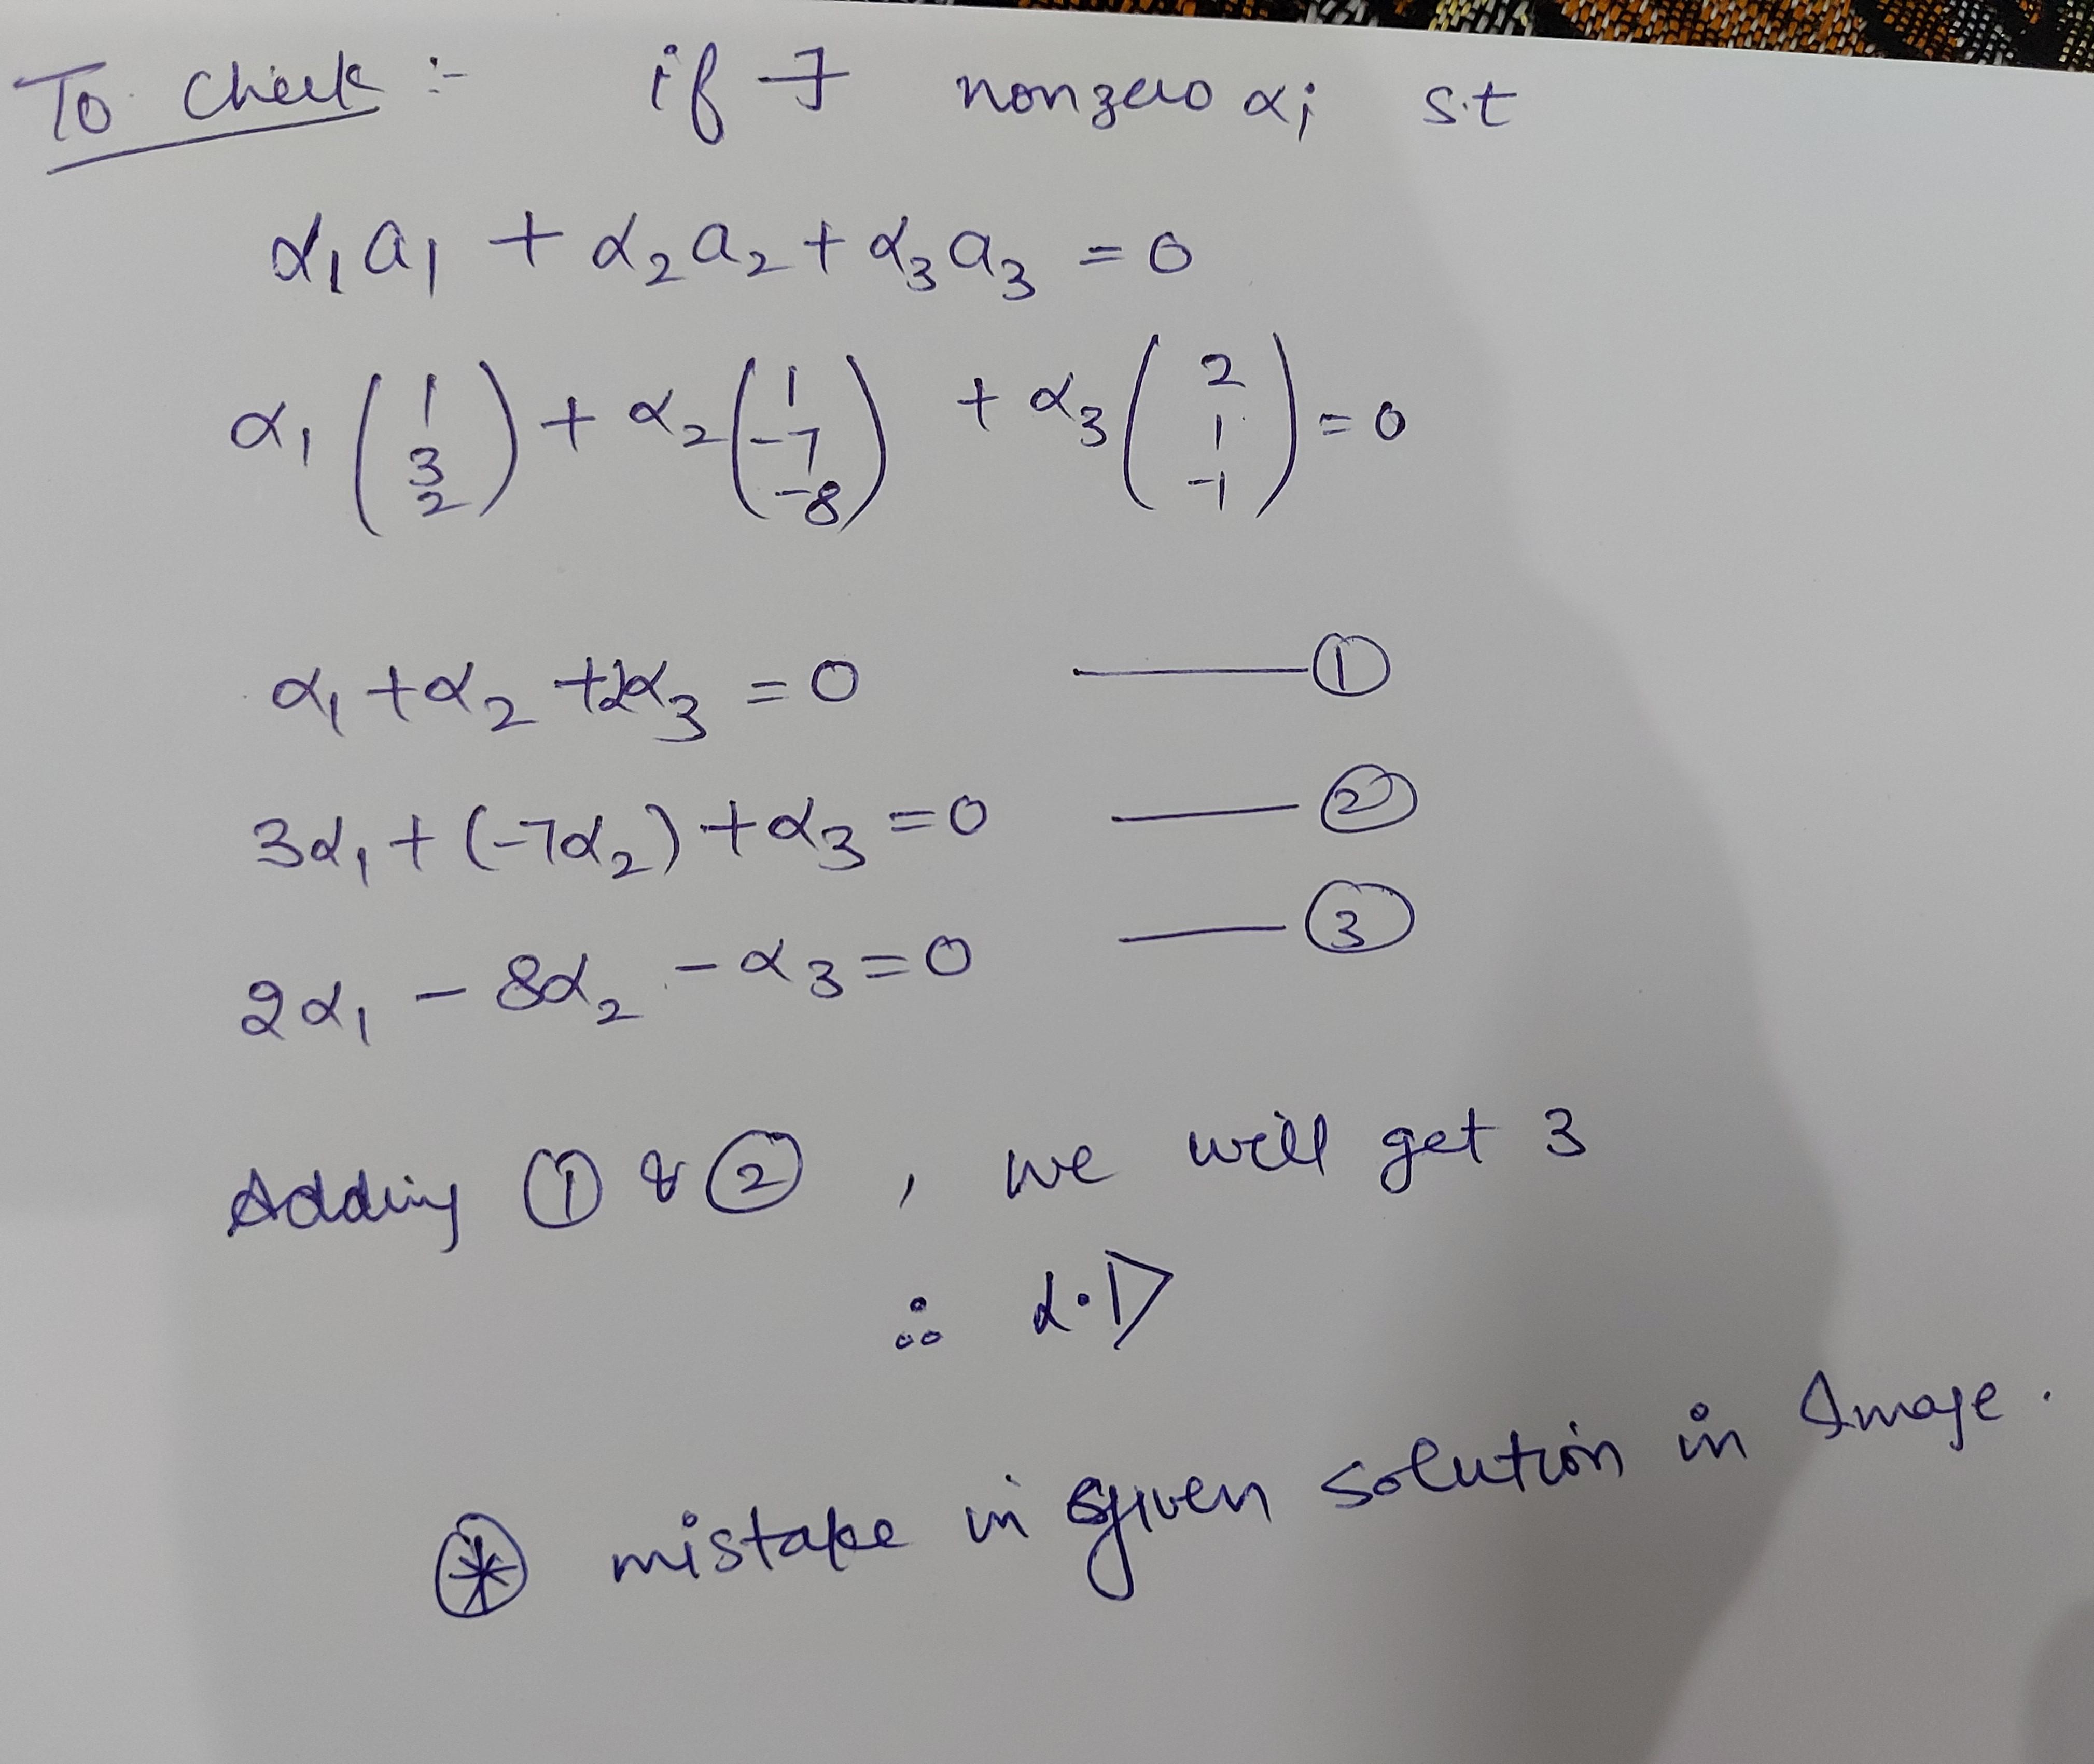 To Check :- if ∃ nonzero αi s.t
α₁a₁ + α₂a₂ + α₃a₃ = 0
α₁(1 3 2) + α₂(1 -7 -8) + α₃(2 1 -1) = 0
α₁ + α₂ + 2α₃ = 0 —— ①
3α₁ + (-7α₂) + α₃ = 0 —— ②
2α₁ - 8α₂ - α₃ = 0 —— ③
Adding ① & ② , we will get 3
∴ L.D
⊛ mistake in given solution in Image.